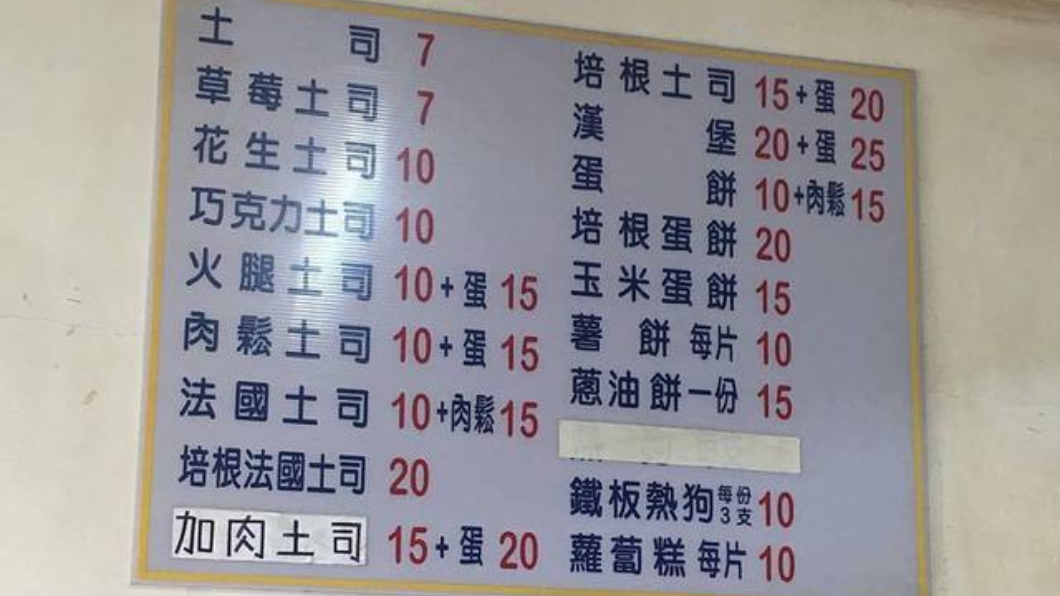 土司 7
草莓土司 7
花生土司 10
巧克力土司 10
火腿土司 10+蛋 15
肉鬆土司 10+蛋 15
法國土司 10+肉鬆 15
培根法國土司 20
加肉土司 15+蛋 20
培根土司 15+蛋 20
漢堡 20+蛋 25
蛋餅 10+肉鬆 15
培根蛋餅 20
玉米蛋餅 15
薯餅 每片 10
蔥油餅一份 15
鐵板熱狗 每份3支 10
蘿蔔糕 每片 10